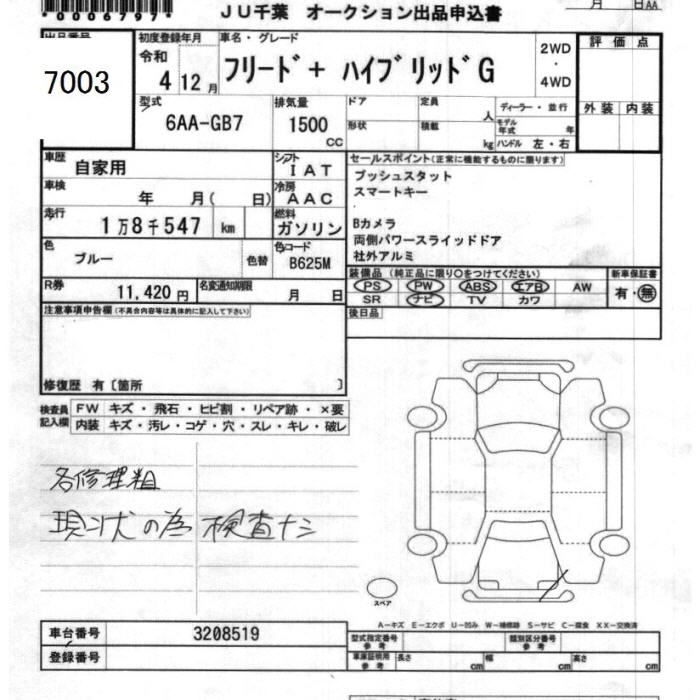 *0006797*
JU千葉 オークション出品申込書
月 日AA
出品番号
7003
初度登録年月
令和
4 12月
車名・グレード
フリード+ ハイブリッドG
2WD
・
4WD
評価点
外装 内装
型式
6AA-GB7
排気量
1500
cc
ドア
形状
定員
人
積載
kg
ディーラー・並行
モデル年式 年
ハンドル 左・右
車歴
自家用
シフト
IAT
車検
年 月( 日)
冷房
AAC
走行
1万8千547 km
燃料
ガソリン
色
ブルー
色替
色コード
B625M
R券
11,420円
名変通知期限
月 日
セールスポイント(正常に機能するものに限ります)
プッシュスタット
スマートキー
Bカメラ
両側パワースライッドドア
社外アルミ
装備品 (純正品に限り○をつけてください)
新車保証書
PS PW ABS エアB AW
有・無
SR ナビ TV カワ
後日品
注意事項申告欄(不具合内容等は具体的に記入して下さい)
修復歴 有〔箇所 〕
検査員記入欄
FW キズ・飛石・ヒビ割・リペア跡・×要
内装 キズ・汚レ・コゲ・穴・スレ・キレ・破レ
各修理粗
現状の為 検査ナシ
スペア
A-キズ E-エクボ U-凹み W-補修跡 S-サビ C-腐食 XX-交換済
車台番号
3208519
登録番号
型式指定番号
参考
類別区分番号
参考
車庫証明用
参考
長さ cm
幅 cm
高さ cm